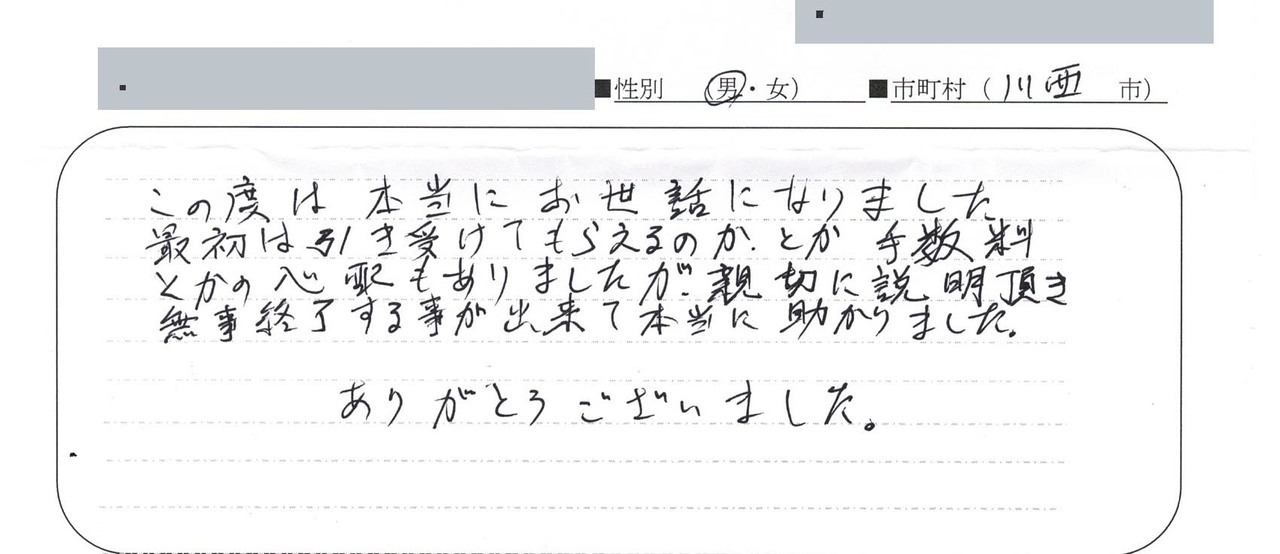 ■性別　(男・女)　■市町村（川西　市）
この度は 本当に お世話になりました
最初は引き受けてもらえるのか、とか 手数料
とかの心配もありましたが、親切に説明頂き
無事終了する事が出来て本当に助かりました。
ありがとうございました。